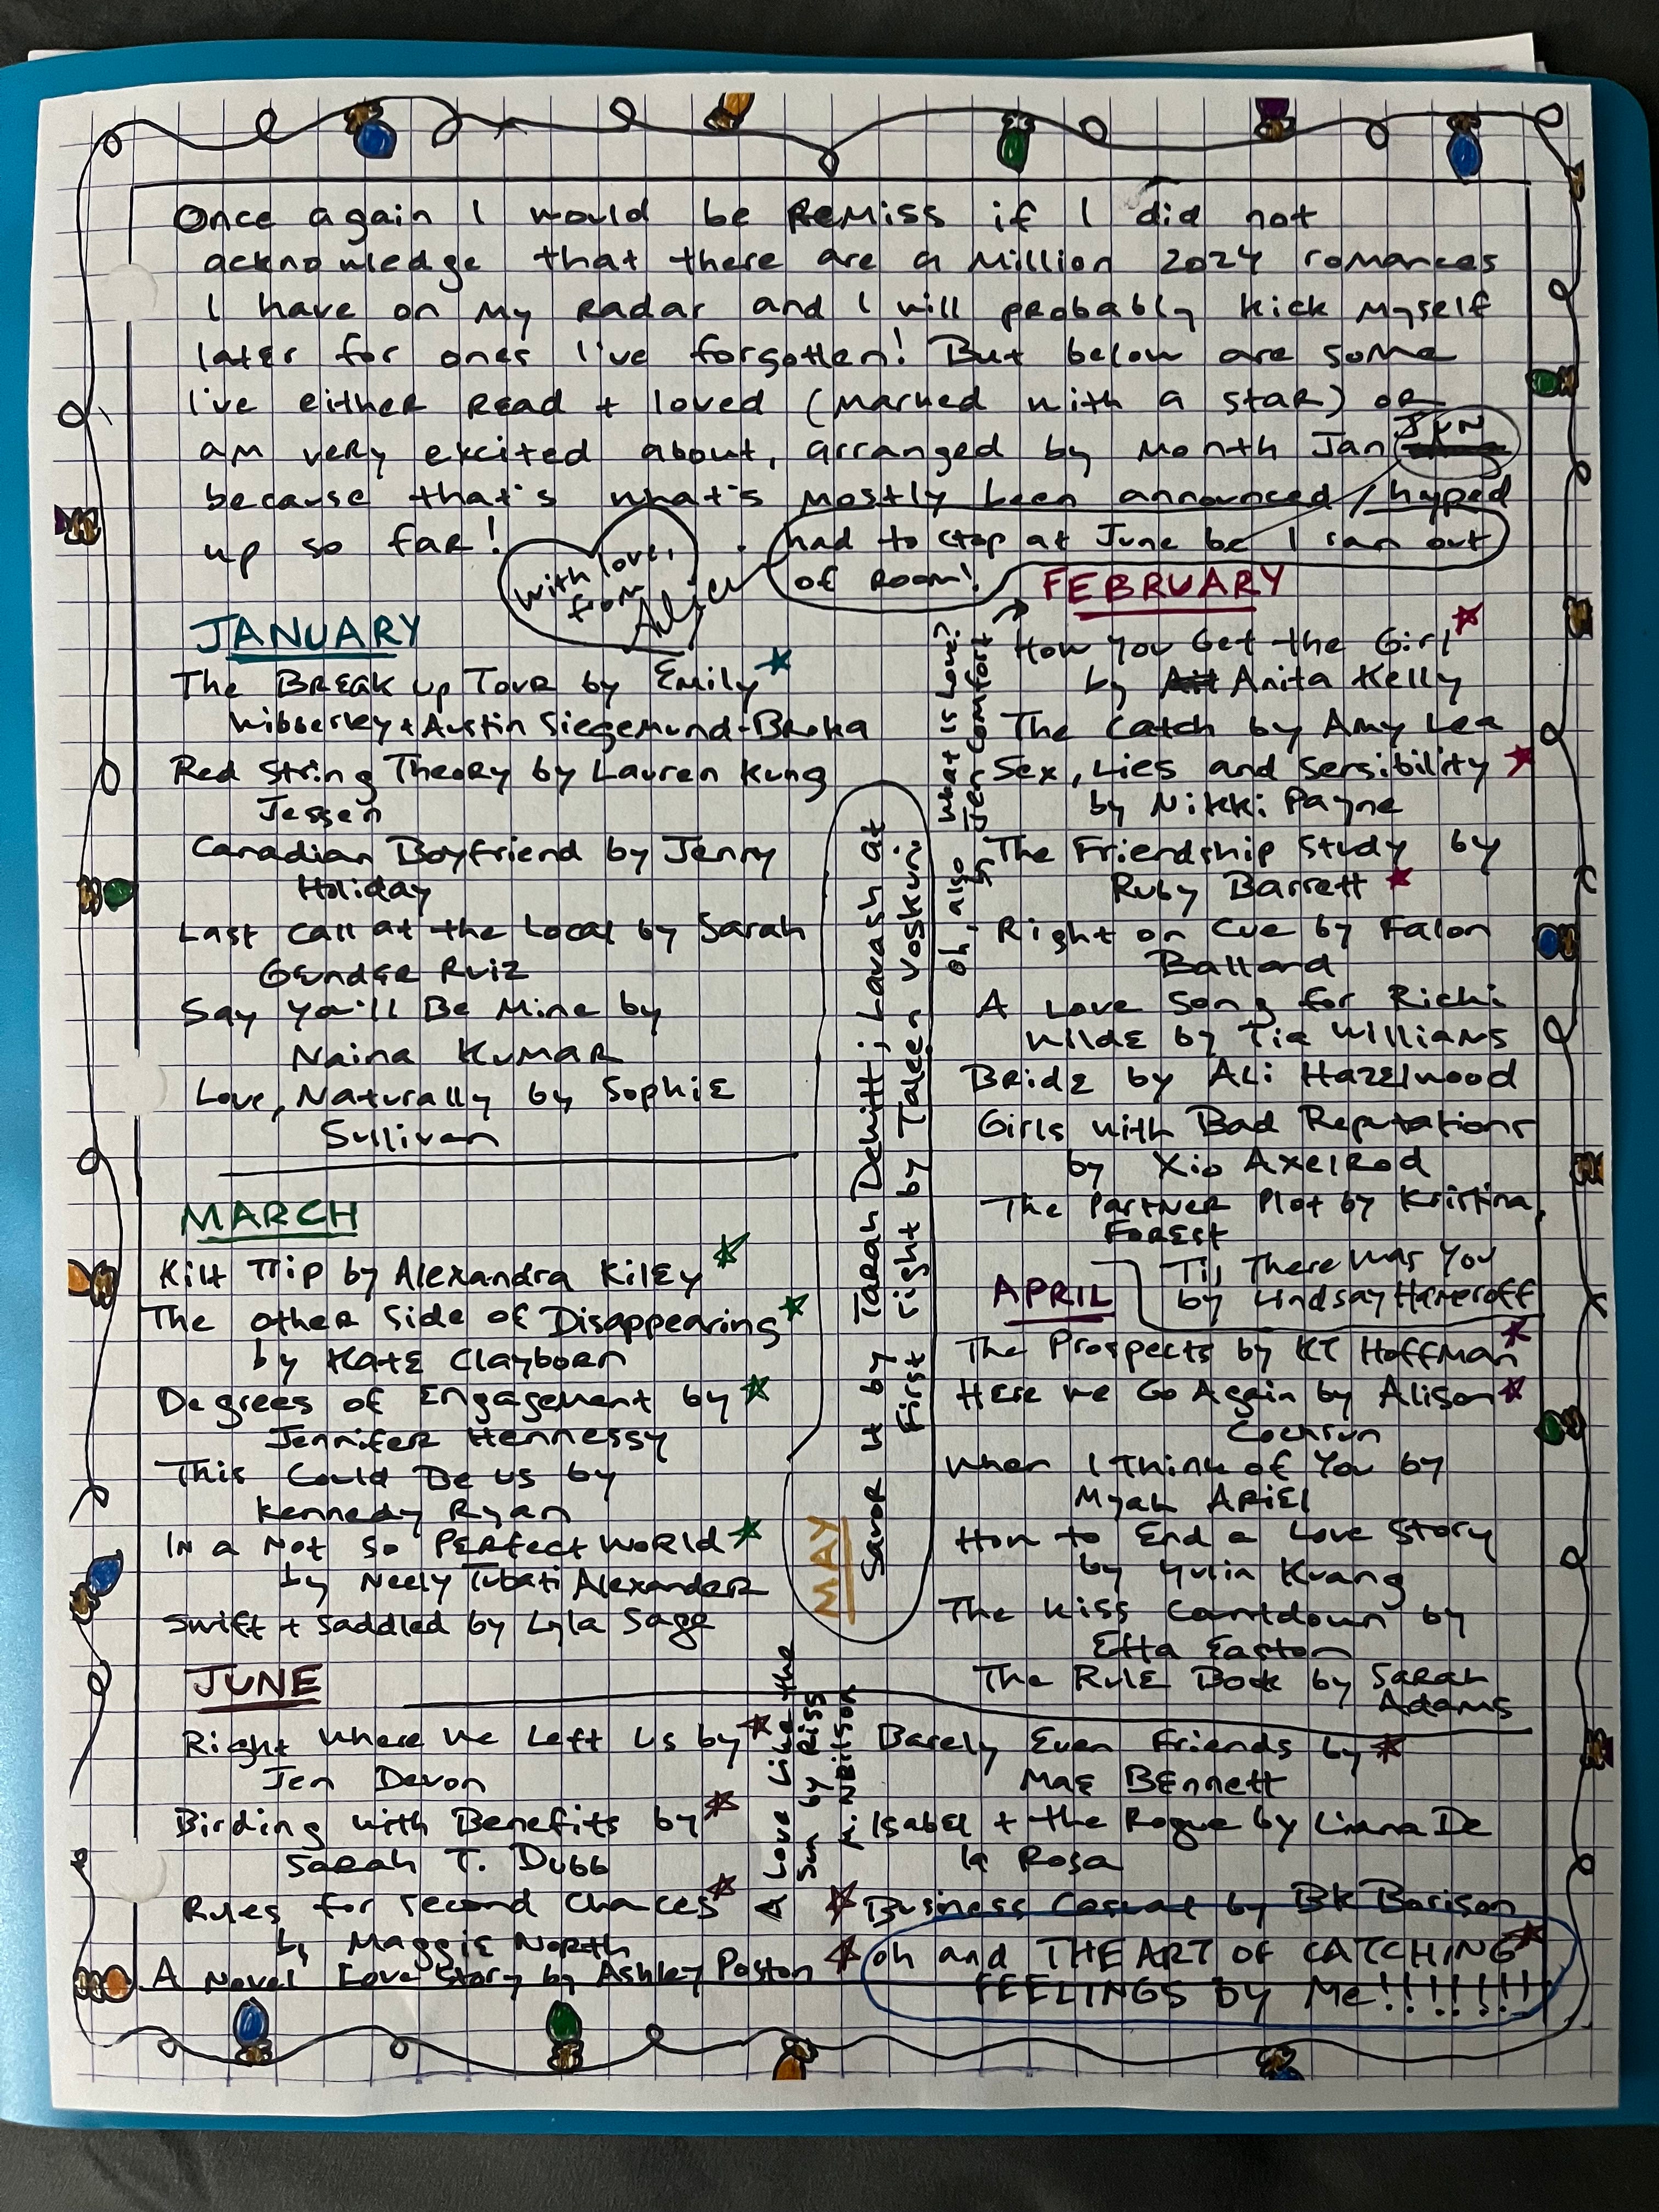 Once again I would be Remiss if I did not
acknowledge that there are a million 2024 romances
I have on my radar and I will probably kick myself
later for ones I've forgotten! But below are some
I've either read + loved (marked with a star) or
am very excited about, arranged by month Jan JUN
because that's what's mostly been announced/hyped
up so far!
had to stop at June bc I ran out
of room!
with love,
from
Alicia
JANUARY
The Break Up Tour by Emily
Wibberley + Austin Siegemund-Broka
Red String Theory by Lauren Kung
Jessen
Canadian Boyfriend by Jenny
Holiday
Last Call at the Local by Sarah
Grunder Ruiz
Say You'll Be Mine by
Naina Kumar
Love, Naturally by Sophie
Sullivan
FEBRUARY
How You Get the Girl
by Anita Kelly
The Catch by Amy Lea
Sex, Lies and Sensibility
by Nikki Payne
The Friendship Study by
Ruby Barrett
Right on Cue by Falon
Ballard
A Love Song for Ricki
Wilde by Tia Williams
Bride by Ali Hazelwood
Girls with Bad Reputations
by Xio Axelrod
The Partner Plot by Kristina
Forest
oh, also What is Love?
by Jen Comfort
MARCH
Kilt Trip by Alexandra Kiley
The Other Side of Disappearing
by Kate Clayborn
Degrees of Engagement by
Jennifer Hennessy
This Could Be Us by
Kennedy Ryan
In a Not So Perfect World
by Neely Tubati Alexander
Swift + Saddled by Lyla Sage
Til There Was You
by Lindsay Hameroff
APRIL
The Prospects by KT Hoffman
Here We Go Again by Alison
Cochrun
When I Think of You by
Myah Ariel
How to End a Love Story
by Yulin Kuang
The Kiss Countdown by
Etta Easton
The Rule Book by Sarah
Adams
MAY
Savor It by Tarah Dewitt; Lavash at
First Sight by Taleen Voskuni
JUNE
Right Where We Left Us by
Jen Devon
Birding with Benefits by
Sarah T. Dubb
Rules for Second Chances
by Maggie North
A Novel Love Story by Ashley Poston
A Love Like the
Sun by Riss
M. Neilson
Barely Even Friends by
Mae Bennett
Isabel + the Rogue by Liana De
la Rosa
Business Casual by BK Borison
oh and THE ART OF CATCHING
FEELINGS by Me!!!!!!!!